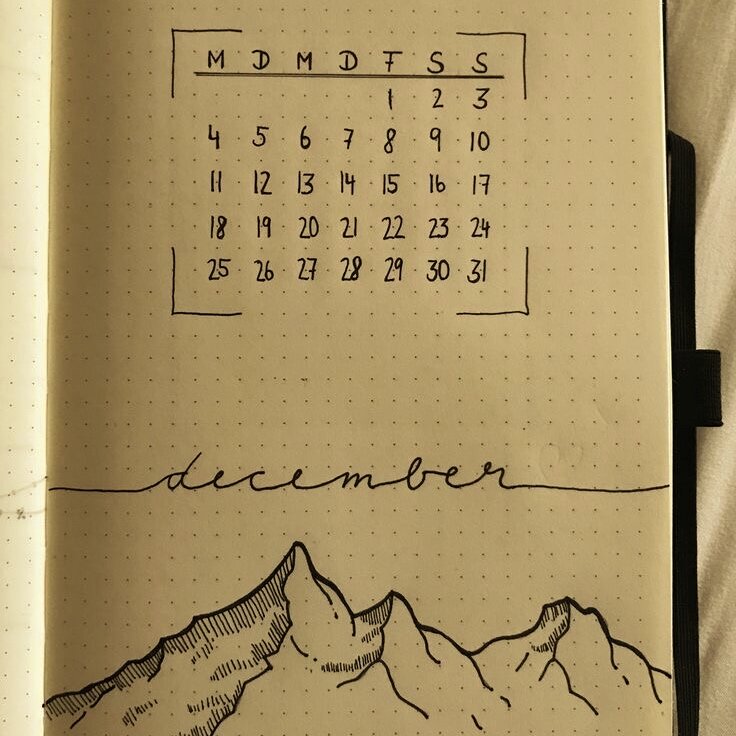 M D M D F S S
1 2 3
4 5 6 7 8 9 10
11 12 13 14 15 16 17
18 19 20 21 22 23 24
25 26 27 28 29 30 31
december